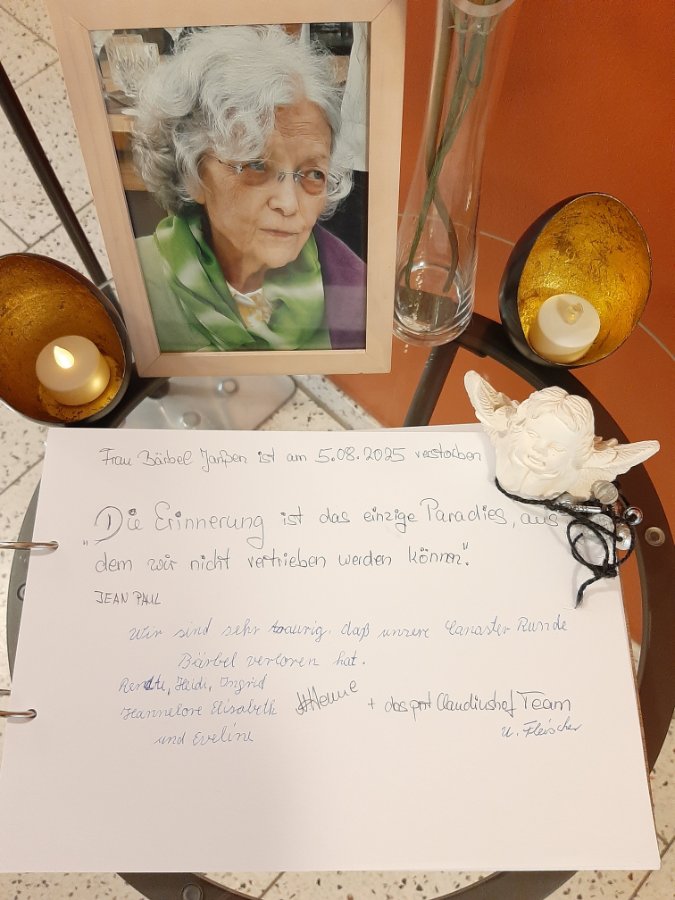 Frau Bärbel Janßen ist am 5.08.2025 verstorben
"Die Erinnerung ist das einzige Paradies, aus
dem wir nicht vertrieben werden können".
JEAN PAUL
Wir sind sehr traurig, daß unsere Canaster Runde
Bärbel verloren hat.
Renate, Heidi, Ingrid
Hannelore Elisabeth
und Eveline
+ das Claudiushof Team
U. Fleischer